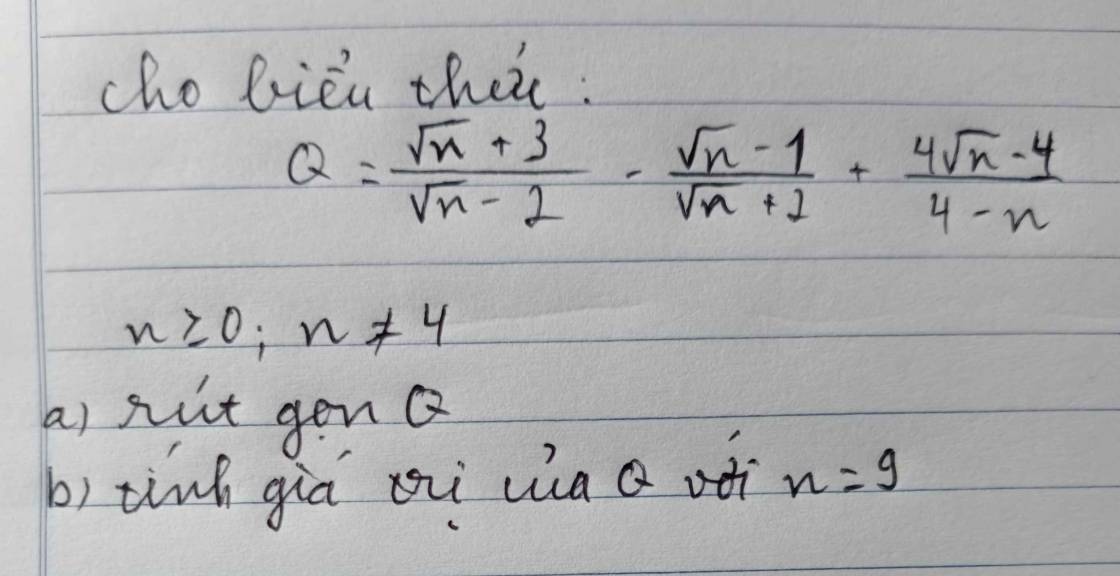 cho biểu thức :
Q = \frac{\sqrt{n} + 3}{\sqrt{n} - 2} - \frac{\sqrt{n} - 1}{\sqrt{n} + 2} + \frac{4\sqrt{n} - 4}{4 - n}
n ≥ 0 ; n ≠ 4
a) rút gọn Q
b) tính giá trị của Q với n = 9